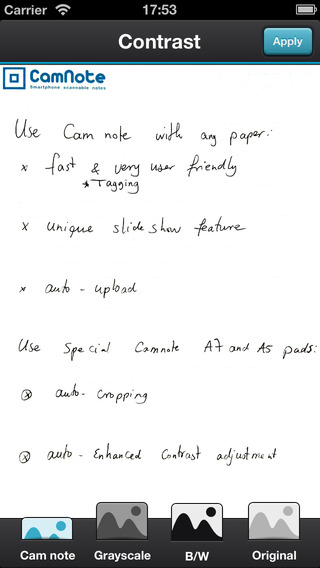 Carrier 17:53
Contrast
Apply
CamNote
Smartphone scannable notes
Use Cam note with any paper:
x fast & very user friendly
* Tagging
x unique slide show feature
x auto - upload
Use Special Camnote A7 and A5 pads:
x auto - cropping
x auto - Enhanced Contrast adjustment
Cam note Grayscale B/W Original